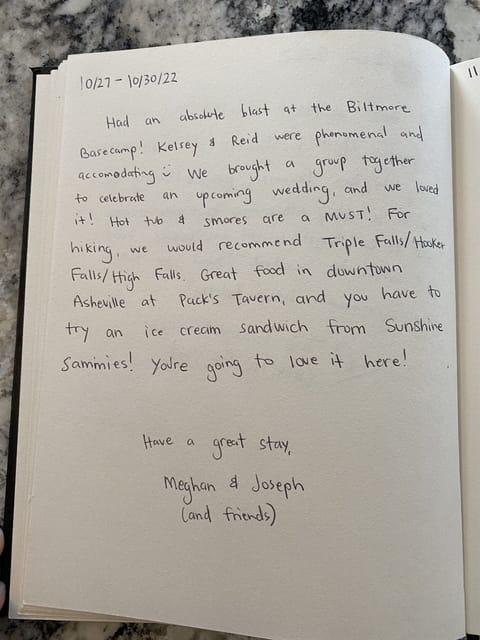 10/27 - 10/30/22
Had an absolute blast at the Biltmore
Basecamp! Kelsey & Reid were phenomenal and
accomodating :) We brought a group together
to celebrate an upcoming wedding, and we loved
it! Hot tub & smores are a MUST! For
hiking, we would recommend Triple Falls/Hooker
Falls/High Falls. Great food in downtown
Asheville at Pack's Tavern, and you have to
try an ice cream sandwich from Sunshine
Sammies! You're going to love it here!
Have a great stay,
Meghan & Joseph
(and friends)
11